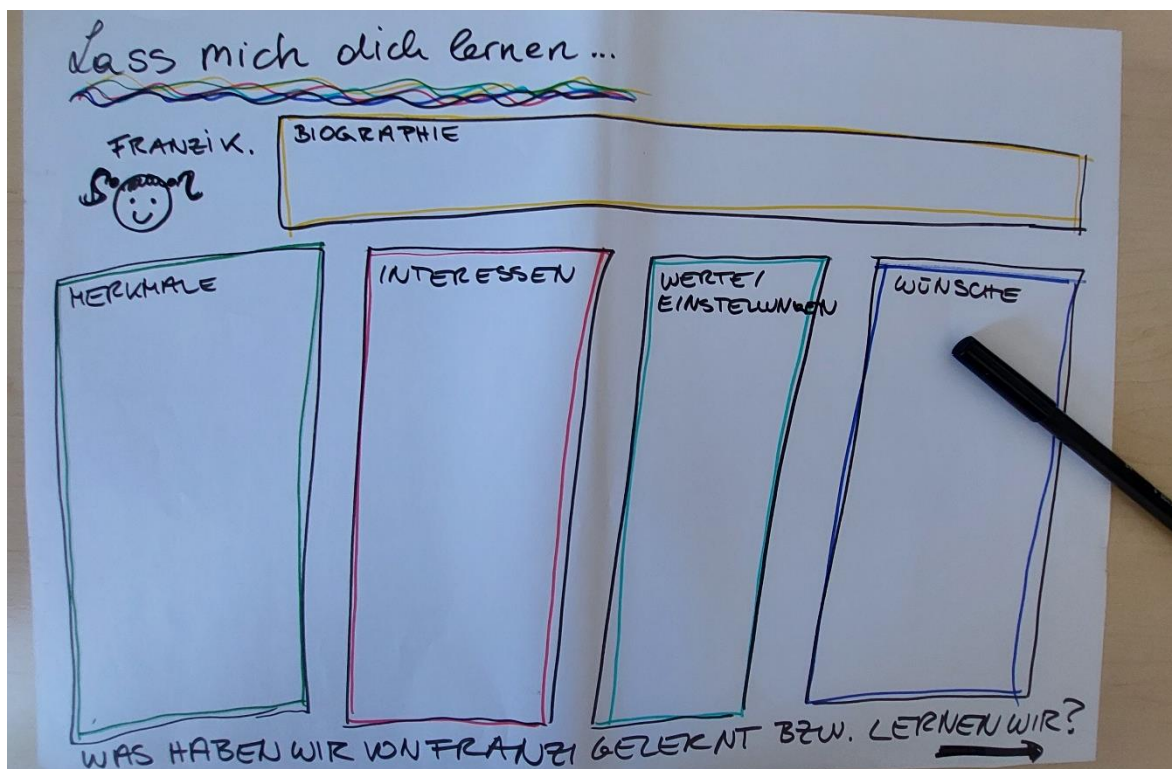 Lass mich dich lernen...
FRANZI K.
BIOGRAPHIE
MERKMALE
INTERESSEN
WERTE/
EINSTELLUNGEN
WÜNSCHE
WAS HABEN WIR VON FRANZI GELERNT BZW. LERNEN WIR?